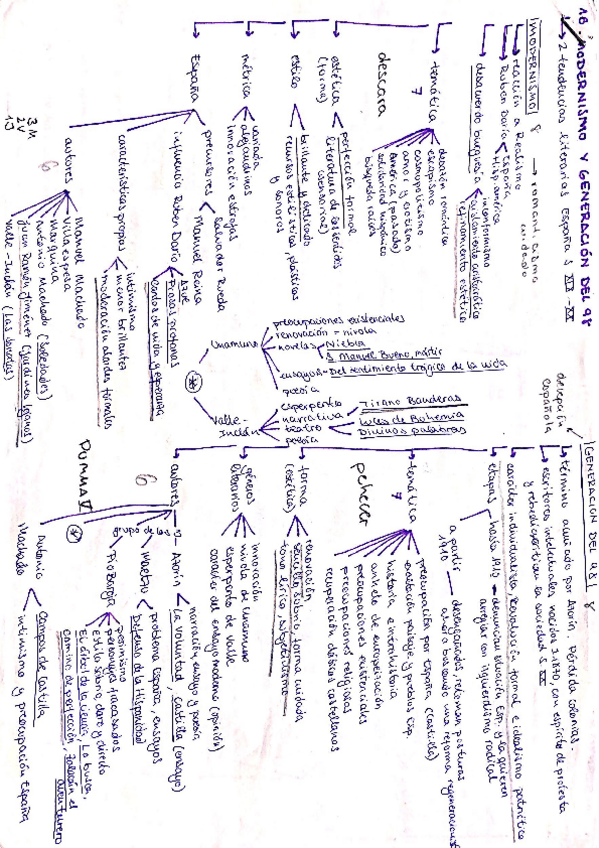 18. MODERNISMO Y GENERACIÓN DEL 98
2 tendencias literarias España S XIX - XX
MODERNISMO 8
reacción a Realismo → romanticismo
Rubén Darío
España
Hispamérica
desacuerdo burguesía
inconformismo
aislamiento aristocrático
refinamiento estético
temática
7
descara
desazón romántica
escapismo
cosmopolitismo
amor y erotismo
América (pasado)
búsqueda raíces
estética
(forma)
perfección formal
literatura de los sentidos
(sensorial)
estilo
brillante y delicado
recursos estilísticos, plásticos
y sonoros
métrica
variada
alejandrinos
innovación estrofas
España
precursores
Salvador Rueda
Manuel Reina
influencia Rubén Darío
Azul
Prosas profanas
Cantos de vida y esperanza
características propias
intimismo
menor brillantez
moderación alardes formales
autores
6
3 M
2 V
1 J
Manuel Machado
Villaespesa
Marquina
Antonio Machado (Soledades)
Juan Ramón Jiménez (Jardines lejanos)
Valle-Inclán (Las Sonatas)
Unamuno
preocupaciones existenciales
renovación = nivola
novelas
Niebla
S. Manuel Bueno, mártir
ensayos - Del sentimiento trágico de la vida
poesía
Valle-Inclán
esperpento
narrativa
Tirano Banderas
teatro
Luces de Bohemia
Divinas palabras
poesía
GENERACIÓN DEL 98 8
decepción
Española
término acuñado por Azorín. Pérdida colonias.
escritores intelectuales nacidos ≥ 1870, con espíritu de protesta
carácter individualista, renovación formal e idealismo patriótico
etapas
hasta 1910 - denuncian situación Esp. y la quieren
arreglar con izquierdismo radical
a partir
1910
desengañados, retoman posturas
ahora buscando una reforma regeneracionista
temática
7
pehecer
preocupación por España (Castilla)
exaltación paisaje y pueblos Esp.
historia e intrahistoria
anhelo de europeización
preocupaciones existenciales
preocupaciones religiosas
recuperación clásicos castellanos
forma
(estética)
renovación
sencillez, sobrio, forma cuidada
tono lírico, subjetivismo
géneros
literarios
innovación
nivola de Unamuno
esperpento de Valle
creación del ensayo moderno (opinión)
autores
6
PUMMAV
grupo de los 3
Azorín
narración, ensayo y poesía
La voluntad, Castilla (ensayo)
Maeztu
problema España, ensayos
Defensa de la Hispanidad
Pío Baroja
pesimismo
personajes fracasados
estilo llano, claro y directo
El árbol de la ciencia, La busca,
camino de perfección, Zalacaín el
aventurero
Antonio
Machado
Campos de Castilla
intimismo y preocupación España